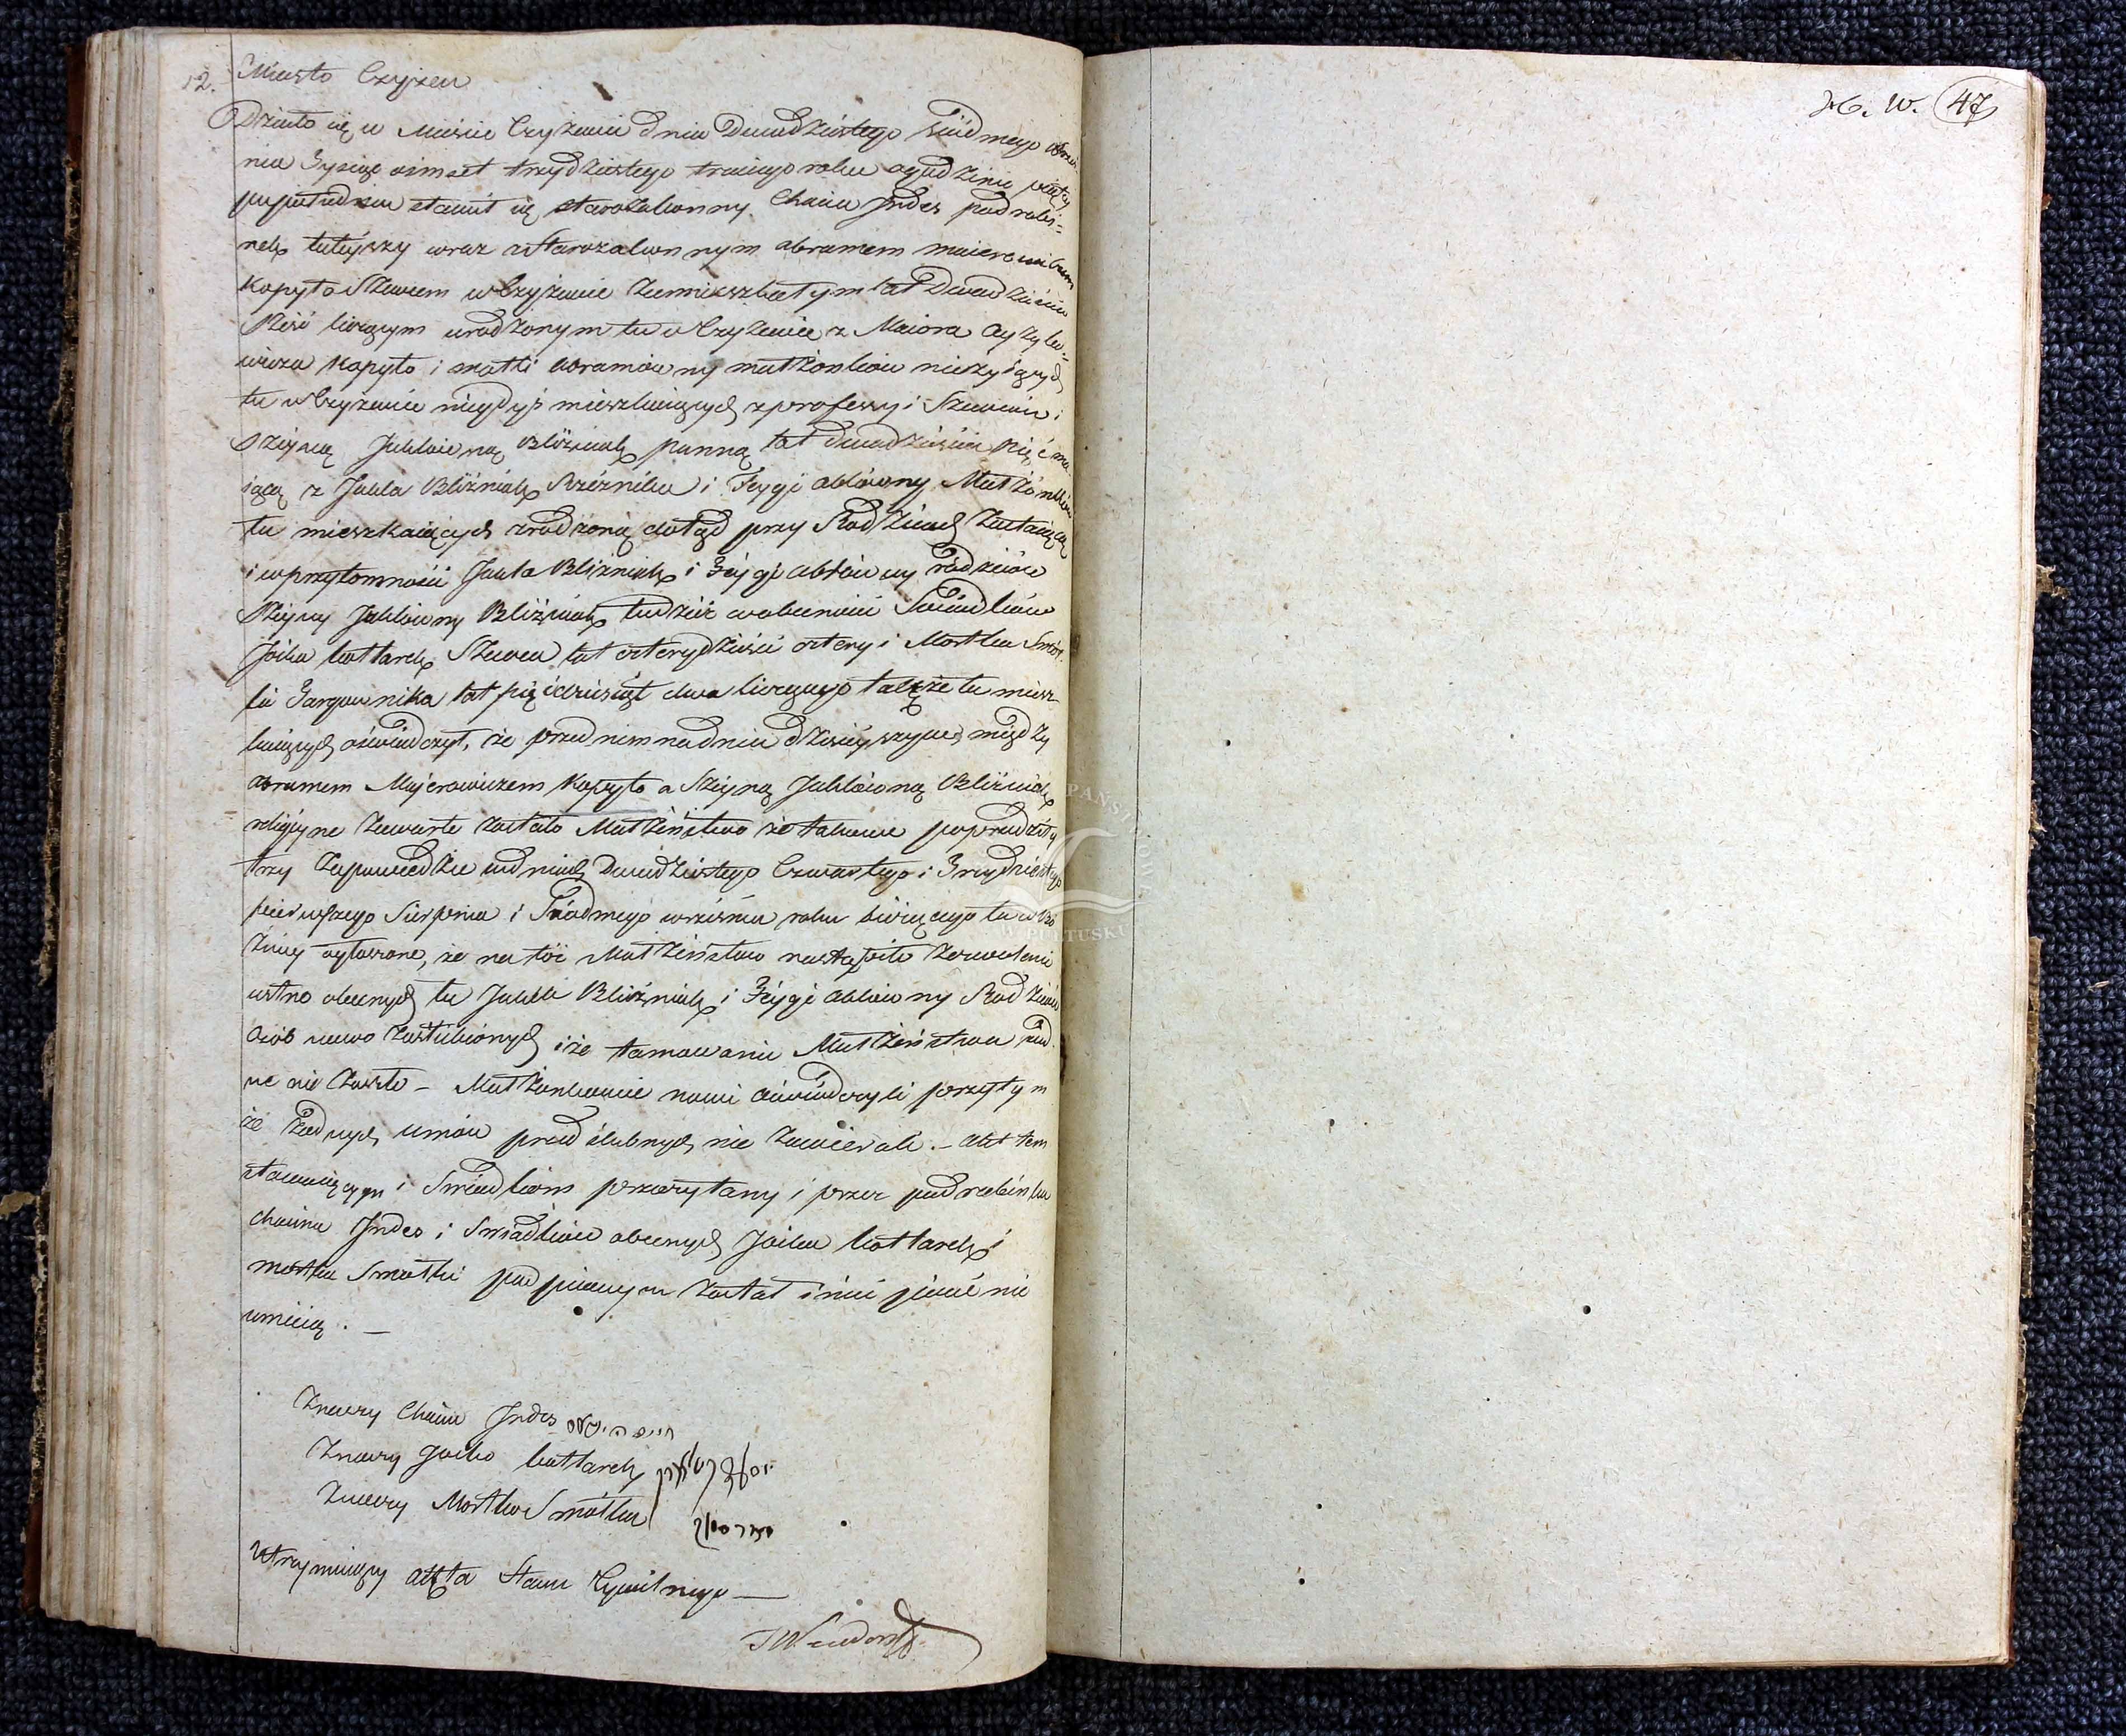 12. Miasto Czyżew
Działo się w Mieście Czyżewie dnia Dwudziestego siódmego wrześ-
nia Tysiąc ośmset trzydziestego trzeciego roku o godzinie piątey
popołudniu stawił się starozakonny Chaim Jndes podrabi-
nek tuteyszy wraz z Starozakonnym Abramem Maierowiczem
Kopyto Szewcem w Czyżewie zamieszkałym lat Dwadzieścia
sześć liczącym urodzonym tu w Czyżewie z Maiora
wicza Kopyto i matki Abramowny małżonków nieżyiących
tu w Czyżewie niegdyś mieszkaiących z professyi Szewców i
Szeyną Janklowną Bliźniak panną lat dwadzieścia pięć ma-
iącą z Jankla Bliźniak Rzeźnika i Feygi Abłowny Małżonków
tu mieszkaiących zrodzoną dotąd przy Rodzicach zostaiącą
i w przytomności Jankla Bliźniak i Feygi Abłowny rodziców
Szeyny Janklowny Bliźniak tudzież w obecności Świadków
Joska Kotlarek Szewca lat czterydzieści cztery i Mortka Smot-
ki Targownika lat pięćdziesiąt dwa liczącego także tu miesz-
kaiących oświadczył, że przed nim na dniu dzisieyszym między
Abramem Majerowiczem Kopyto a Szeyną Janklowną Bliźniak
religijne zawarte zostało Małżeństwo że takowe poprzedziły
trzy zapowiedzie w dniach Dwudziestego Czwartego i Trzydziestego
pierwszego Sierpnia i Siódmego września roku bieżącego tu w Bó
żnicy ogłoszone, że na toż Małżeństwo nastąpiło zezwolenie
ustne obecnych tu Jankla Bliźniak i Feygi Abłowny Rodziców
osób nowo zaślubionych i że tamowanie Małżeństwa żad-
ne nie zaszło – Małżonkowie nowi oświadczyli przytym
że żadnych umów przedślubnych nie zawierali. – Akt ten
stawaiącym i Świadkom przeczytany i przez podrabinka
Chaima Jndes i Świadków obecnych Joska Kotlarek i
Mortka Smotki podpisanym został inni pisać nie
umieią. —
Znaczy Chaim Jndes
Znaczy Josko Kotlarek
Znaczy Mortko Smotka
Utrzymuiący Akta Stanu Cywilnego —
H. W. 47
PAŃSTWOWE
W PUŁTUSKU